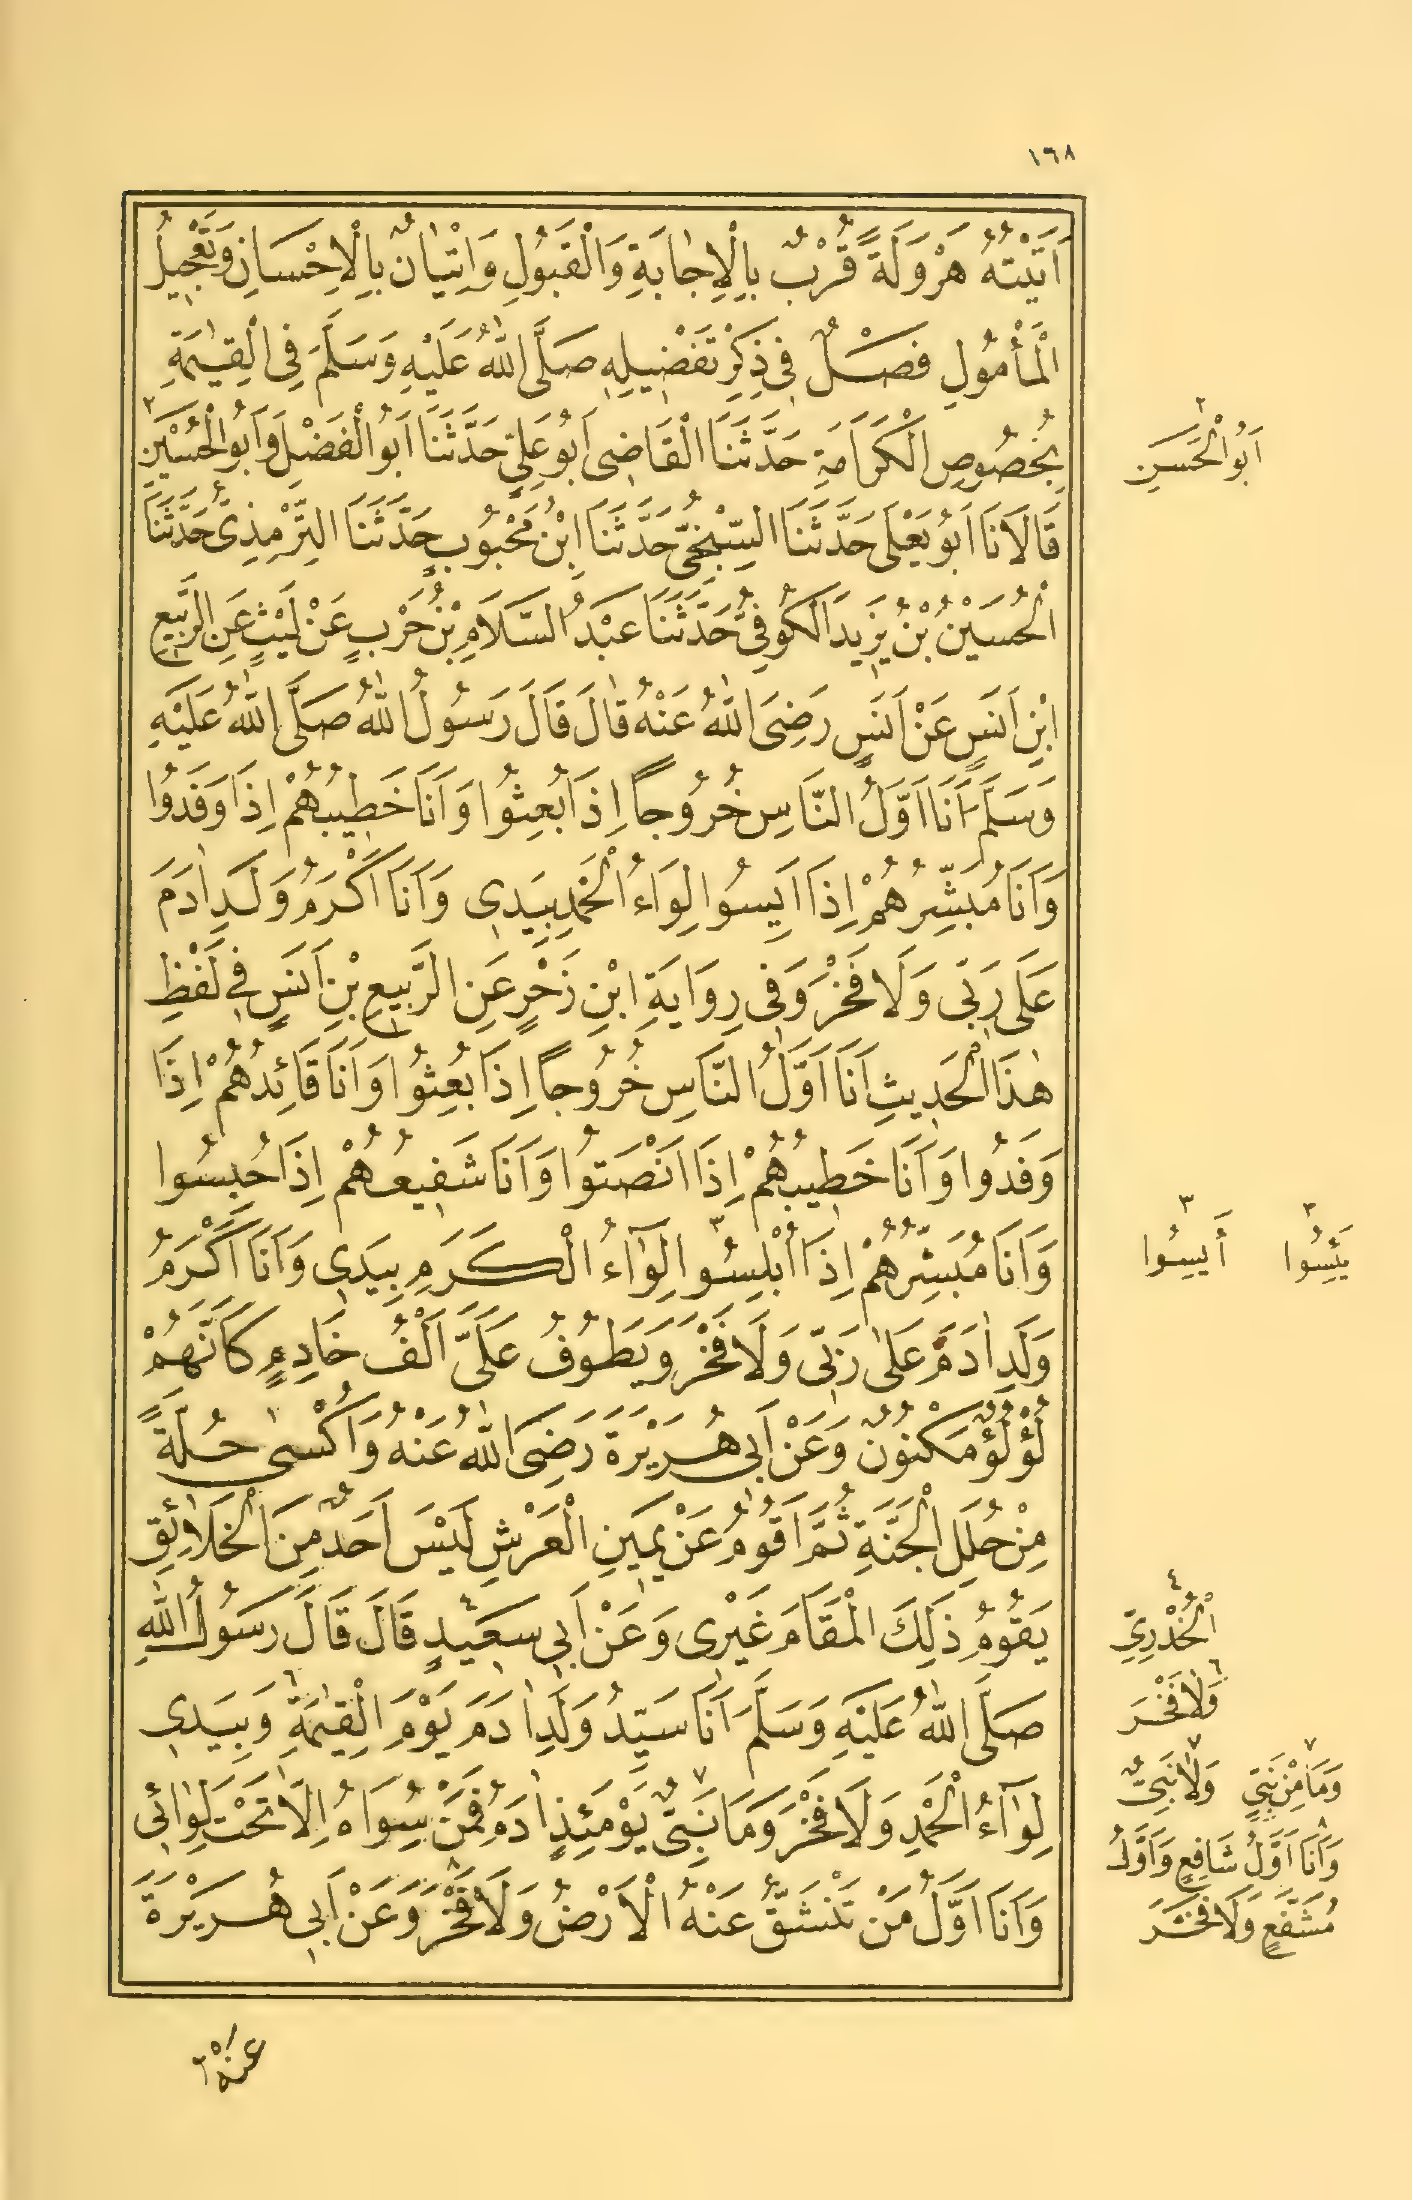 ١٦٨
اَتَيْتُهُ هَرْوَلَةً قُرْبٌ بِالْاِجَابَةِ وَالْقَبُولِ وَاِتْيَانٌ بِالْاِحْسَانِ وَتَعْجِيلُ
الْمَأْمُولِ فَصْلٌ فِى ذِكْرِ تَفْضِيلِهِ صَلَّى اللّٰهُ عَلَيْهِ وَسَلَّمَ فِى الْقِيٰمَةِ
بِخُصُوصِ الْكَرَامَةِ حَدَّثَنَا الْقَاضِى اَبُو عَلِىٍّ حَدَّثَنَا اَبُو الْفَضْلِ وَاَبُو الْحُسَيْنِ ٢
قَالَا نَا اَبُو يَعْلَى حَدَّثَنَا السِّنْجِىُّ حَدَّثَنَا ابْنُ مَحْبُوبٍ حَدَّثَنَا التِّرْمِذِىُّ حَدَّثَنَا
الْحُسَيْنُ بْنُ يَزِيدَ الْكُوفِىُّ حَدَّثَنَا عَبْدُ السَّلَامِ بْنُ حَرْبٍ عَنْ لَيْثٍ عَنِ الرَّبِيعِ
ابْنِ اَنَسٍ عَنْ اَنَسٍ رَضِىَ اللّٰهُ عَنْهُ قَالَ قَالَ رَسُولُ اللّٰهُ صَلَّى اللّٰهُ عَلَيْهِ
وَسَلَّمَ اَنَا اَوَّلُ النَّاسِ خُرُوجًا اِذَا بُعِثُوا وَاَنَا خَطِيبُهُمْ اِذَا وَفَدُوا
وَاَنَا مُبَشِّرُهُمْ اِذَا اَيِسُوا لِوَاءُ الْحَمْدِ بِيَدِى وَاَنَا اَكْرَمُ وَلَدِ اٰدَمَ
عَلَى رَبِّى وَلَا فَخْرَ وَفِى رِوَايَةِ ابْنِ زَحْرٍ عَنِ الرَّبِيعِ بْنِ اَنَسٍ فِى لَفْظِ
هٰذَا الْحَدِيثِ اَنَا اَوَّلُ النَّاسِ خُرُوجًا اِذَا بُعِثُوا وَاَنَا قَائِدُهُمْ اِذَا
وَفَدُوا وَاَنَا خَطِيبُهُمْ اِذَا اَنْصَتُوا وَاَنَا شَفِيعُهُمْ اِذَا حُبِسُوا
وَاَنَا مُبَشِّرُهُمْ اِذَا اُبْلِسُوا ٣ لِوَاءُ الْكَرَمِ بِيَدِى وَاَنَا اَكْرَمُ
وَلَدِ اٰدَمَ عَلَى رَبِّى وَلَا فَخْرَ وَيَطُوفُ عَلَىَّ اَلْفُ خَادِمٍ كَاَنَّهُمْ
لُؤْلُؤٌ مَكْنُونٌ وَعَنْ اَبِى هُرَيْرَةَ رَضِىَ اللّٰهُ عَنْهُ وَاُكْسٰى حُلَّةً
مِنْ حُلَلِ الْجَنَّةِ ثُمَّ اَقُومُ عَنْ يَمِينِ الْعَرْشِ لَيْسَ اَحَدٌ مِنَ الْخَلَائِقِ
يَقُومُ ذَلِكَ الْمَقَامَ غَيْرِى وَعَنْ اَبِى سَعِيدٍ ٤ قَالَ قَالَ رَسُولُ اللّٰهِ
صَلَّى اللّٰهُ عَلَيْهِ وَسَلَّمَ اَنَا سَيِّدُ وَلَدِ اٰدَمَ يَوْمَ الْقِيٰمَةِ ٦ وَبِيَدِى
لِوَاءُ الْحَمْدِ وَلَا فَخْرَ وَمَا نَبِىٌّ ٧ يَوْمَئِذٍ اٰدَمُ فَمَنْ سِوَاهُ اِلَّا تَحْتَ لِوَائِى
وَاَنَا اَوَّلُ مَنْ تَنْشَقُّ عَنْهُ الْاَرْضُ وَلَا فَخْرَ ٨ وَعَنْ اَبِى هُرَيْرَةَ
٢
اَبُو الْحَسَنِ
٣ ٣
يَئِسُوا أَيِسُوا
٤
الْخُدْرِىِّ
٦
وَلَا فَخْرَ
٧ ٧
وَمَا مِنْ نَبِىٍّ وَلَا نَبِىٌّ
٨
وَاَنَا اَوَّلُ شَافِعٍ وَاَوَّلُ
مُشَفَّعٍ وَلَا فَخْرَ
عَنْهُ